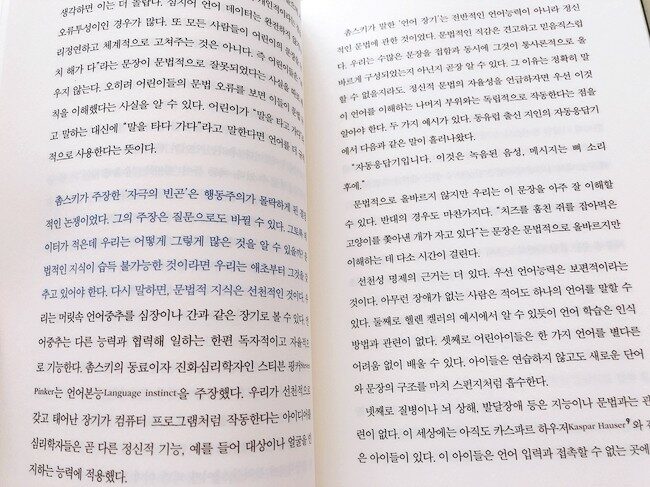 생각하면 이는 더 놀랍다. 심지어 언어 데이터는 완전하지
오류투성이인 경우가 많다. 또 모든 사람들이 어린이의
리정연하고 체계적으로 고쳐주는 것은 아니다. 즉 어린이들은
치 해가 다”라는 문장이 문법적으로 잘못되었다는 사실을
우지 않는다. 오히려 어린이들의 문법 오류를 보면 이들이
칙을 이해했다는 사실을 알 수 있다. 어린이가 “말을 타고
고 말하는 대신에 “말을 타다 가다”라고 말한다면 언어를 더
적으로 사용한다는 뜻이다.
촘스키가 주장한 ‘자극의 빈곤’은 행동주의가 몰락하게 된
적인 논쟁이었다. 그의 주장은 질문으로도 바뀔 수 있다. 그토록
이터가 적은데 우리는 어떻게 그렇게 많은 것을 알 수 있을까?
법적인 지식이 습득 불가능한 것이라면 우리는 애초부터 그것을
추고 있어야 한다. 다시 말하면, 문법적 지식은 선천적인 것이다.
리는 머릿속 언어중추를 심장이나 간과 같은 장기로 볼 수 있다.
어중추는 다른 능력과 협력해 일하는 한편 독자적이고 자율적으
로 기능한다. 촘스키의 동료이자 진화심리학자인 스티븐 핑커
Pinker는 언어본능Language instinct을 주장했다. 우리가 선천적으로
갖고 태어난 장기가 컴퓨터 프로그램처럼 작동한다는 아이디어를
심리학자들은 곧 다른 정신적 기능, 예를 들어 대상이나 얼굴을
지하는 능력에 적용했다.
촘스키가 말한 ‘언어 장기’는 전반적인 언어능력이 아니라 정신
적인 문법에 관한 것이었다. 문법적인 직감은 견고하고 믿음직스럽
다. 우리는 수많은 문장을 접함과 동시에 그것이 통사론적으로 올
바르게 구성되었는지 아닌지 곧장 알 수 있다. 그 이유는 정확히 말
할 수 없을지라도 정신적 문법의 자율성을 언급하자면 우선 이것
이 언어를 이해하는 나머지 부위와는 독립적으로 작동한다는 점을
알아야 한다. 두 가지 예시가 있다. 동유럽 출신 지인의 자동응답기
에서 다음과 같은 말이 흘러나왔다.
“자동응답기입니다. 이것은 녹음된 음성, 메시지는 삐 소리
후에.”
문법적으로 올바르지 않지만 우리는 이 문장을 아주 잘 이해할
수 있다. 반대의 경우도 마찬가지다. “치즈를 훔친 쥐를 잡아먹은
고양이를 쫓아낸 개가 자고 있다”는 문장은 문법적으로 올바르지만
이해하는 데 다소 시간이 걸린다.
선천성 명제의 근거는 더 있다. 우선 언어능력은 보편적이라는
것이다. 아무런 장애가 없는 사람은 적어도 하나의 언어를 말할 수
있다. 둘째로 헬렌 켈러의 예시에서 알 수 있듯이 언어 학습은 인식
방법과 관련이 없다. 셋째로 어린아이들은 한 가지 언어를 별다른
어려움 없이 배울 수 있다. 아이들은 연습하지 않고도 새로운 단어
와 문장의 구조를 마치 스펀지처럼 흡수한다.
넷째로 질병이나 뇌 상해, 발달장애 등은 지능이나 문법과는 관
련이 없다. 이 세상에는 아직도 카스파르 하우저Kaspar Hauser와 같
은 아이들이 있다. 이 아이들은 언어 입력과 접촉할 수 없는 곳에